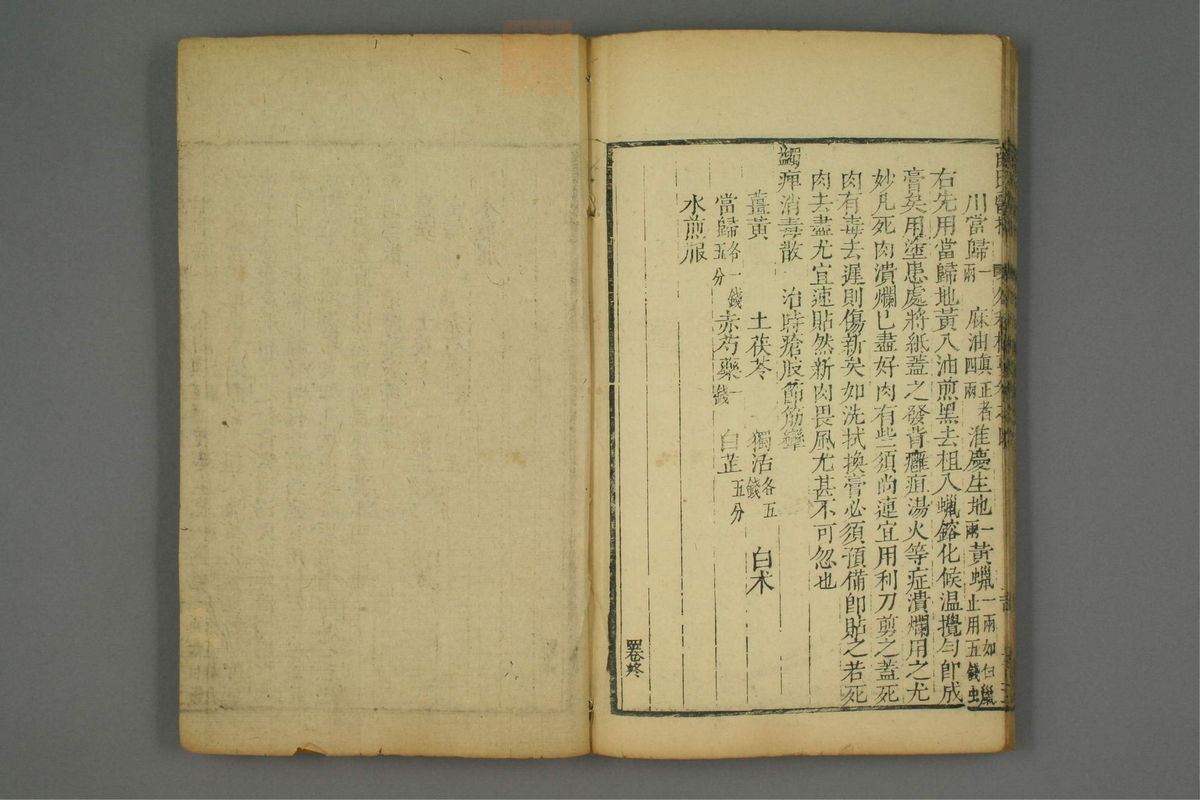 川當歸一兩 麻油真正者四兩 淮慶生地一兩 黃蠟一兩如白蠟止用五錢虫
右先用當歸地黃入油煎黑去柤入蠟鎔化候温攪勻即成
膏矣用塗患處將紙蓋之發背癰疽湯火等症潰爛用之尤
妙凡死肉潰爛已盡好肉有些須尚連宜用利刀剪之蓋死
肉有毒去遲則傷新矣如洗拭換膏必須預備即貼之若死
肉去盡尤宜速貼然新肉畏風尤甚不可忽也
蠲痺消毒散 治時瘡肢節筋攣
薑黃 土茯苓 獨活各五錢 白术
當歸各一錢五分 赤芍藥一錢 白芷五分
水煎服
卷終